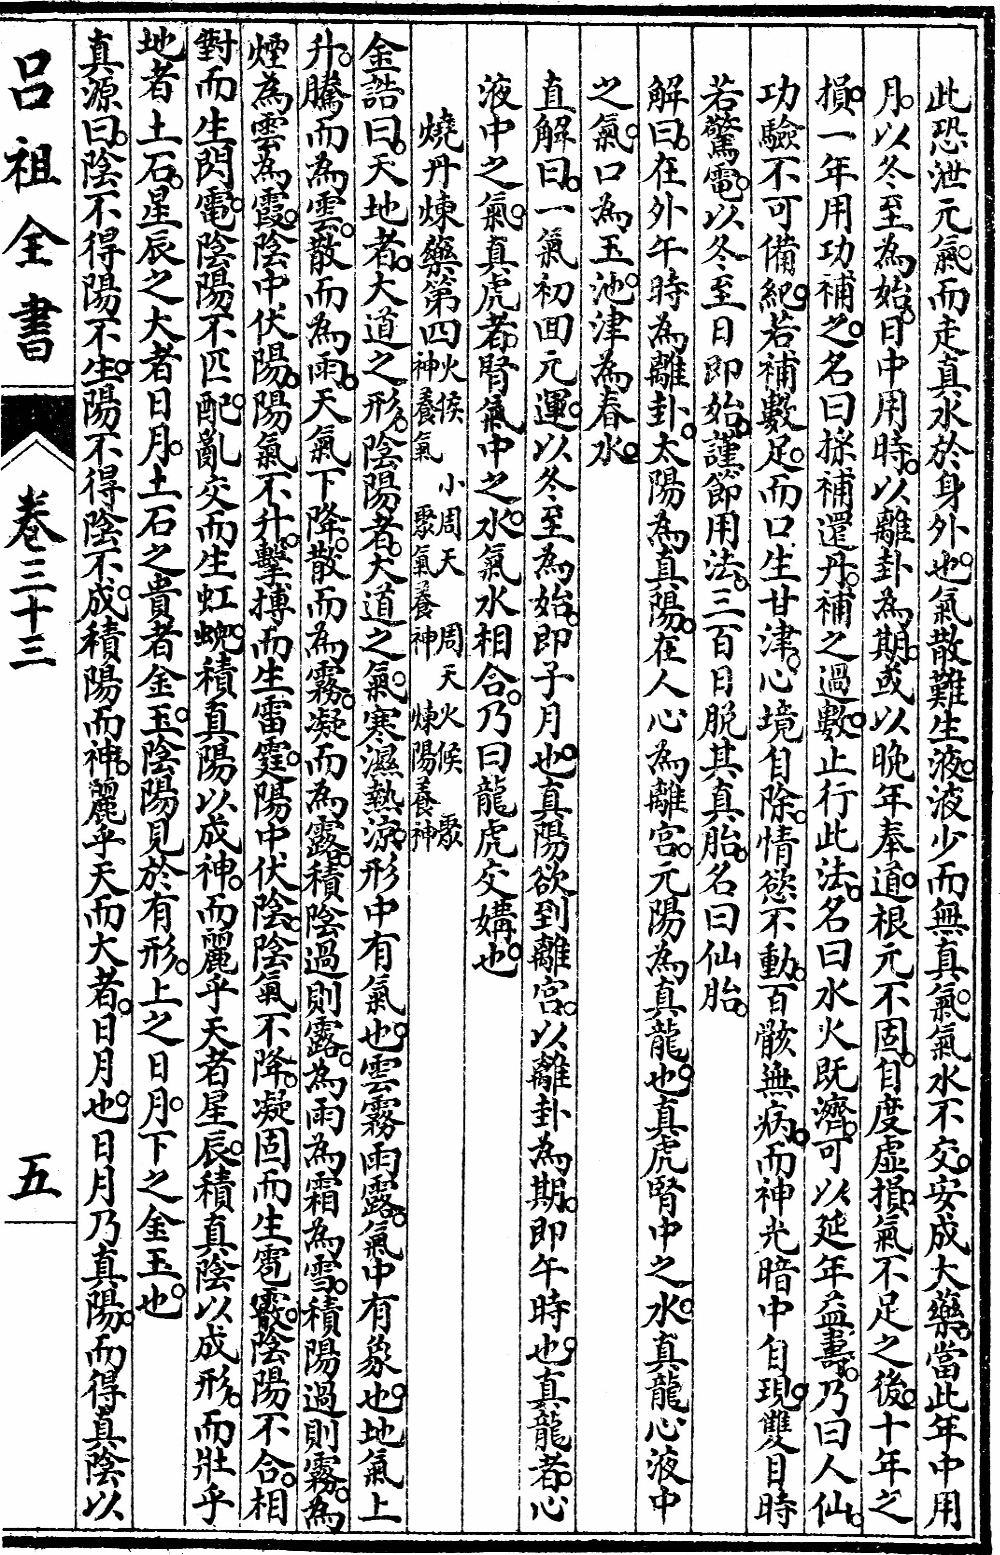 此恐泄元氣而走真水於身外也氣散難生液液少而無真氣氣水不交安成大藥當此年中用
月以冬至為始日中用時以離卦為期或以晚年奉道根元不固自度虛損氣不足之後十年之
損一年用功補之名曰採補還丹補之過數止行此法名曰水火既濟可以延年益壽乃曰人仙
功驗不可備紀若補數足而口生甘津心境自除情慾不動百骸無病而神光暗中自現雙目時
若驚電以冬至日即始謹節用法三百日脫其真胎名曰仙胎
解曰在外午時為離卦太陽為真陽在人心為離宮元陽為真龍也真虎腎中之水真龍心液中
之氣口為玉池津為春水
直解曰一氣初回元運以冬至為始即子月也真陽欲到離宮以離卦為期即午時也真龍者心
液中之氣真虎者腎氣中之水氣水相合乃曰龍虎交媾也
燒丹煉藥第四火候 小周天 周天火候 聚神養氣 聚氣養神 煉陽養神
金誥曰天地者大道之形陰陽者大道之氣寒濕熱涼形中有氣也雲霧雨露氣中有象也地氣上
升騰而為雲散而為雨天氣下降散而為霧凝而為露積陰過則露為雨為霜為雪積陽過則霧為
煙為雲為霞陰中伏陽陽氣不升擊搏而生雷霆陽中伏陰陰氣不降凝固而生雹霰陰陽不合相
對而生閃電陰陽不匹配亂交而生虹蜺積真陽以成神而麗乎天者星辰積真陰以成形而壯乎
地者土石星辰之大者日月土石之貴者金玉陰陽見於有形上之日月下之金玉也
真源曰陰不得陽不生陽不得陰不成積陽而神麗乎天而大者日月也日月乃真陽而得真陰以
呂祖全書
卷三十三
五